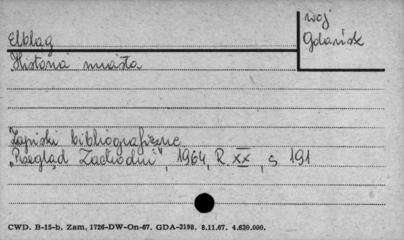 Elbląg
woj
Gdańsk
Historia miasta
Zapiski bibliograficzne
"Przegląd Zachodni", 1964, R XX, s 191
CWD. B-15-b. Zam. 1726-DW-On-67. GDA-3198. 8.11.67. 4.630.000.